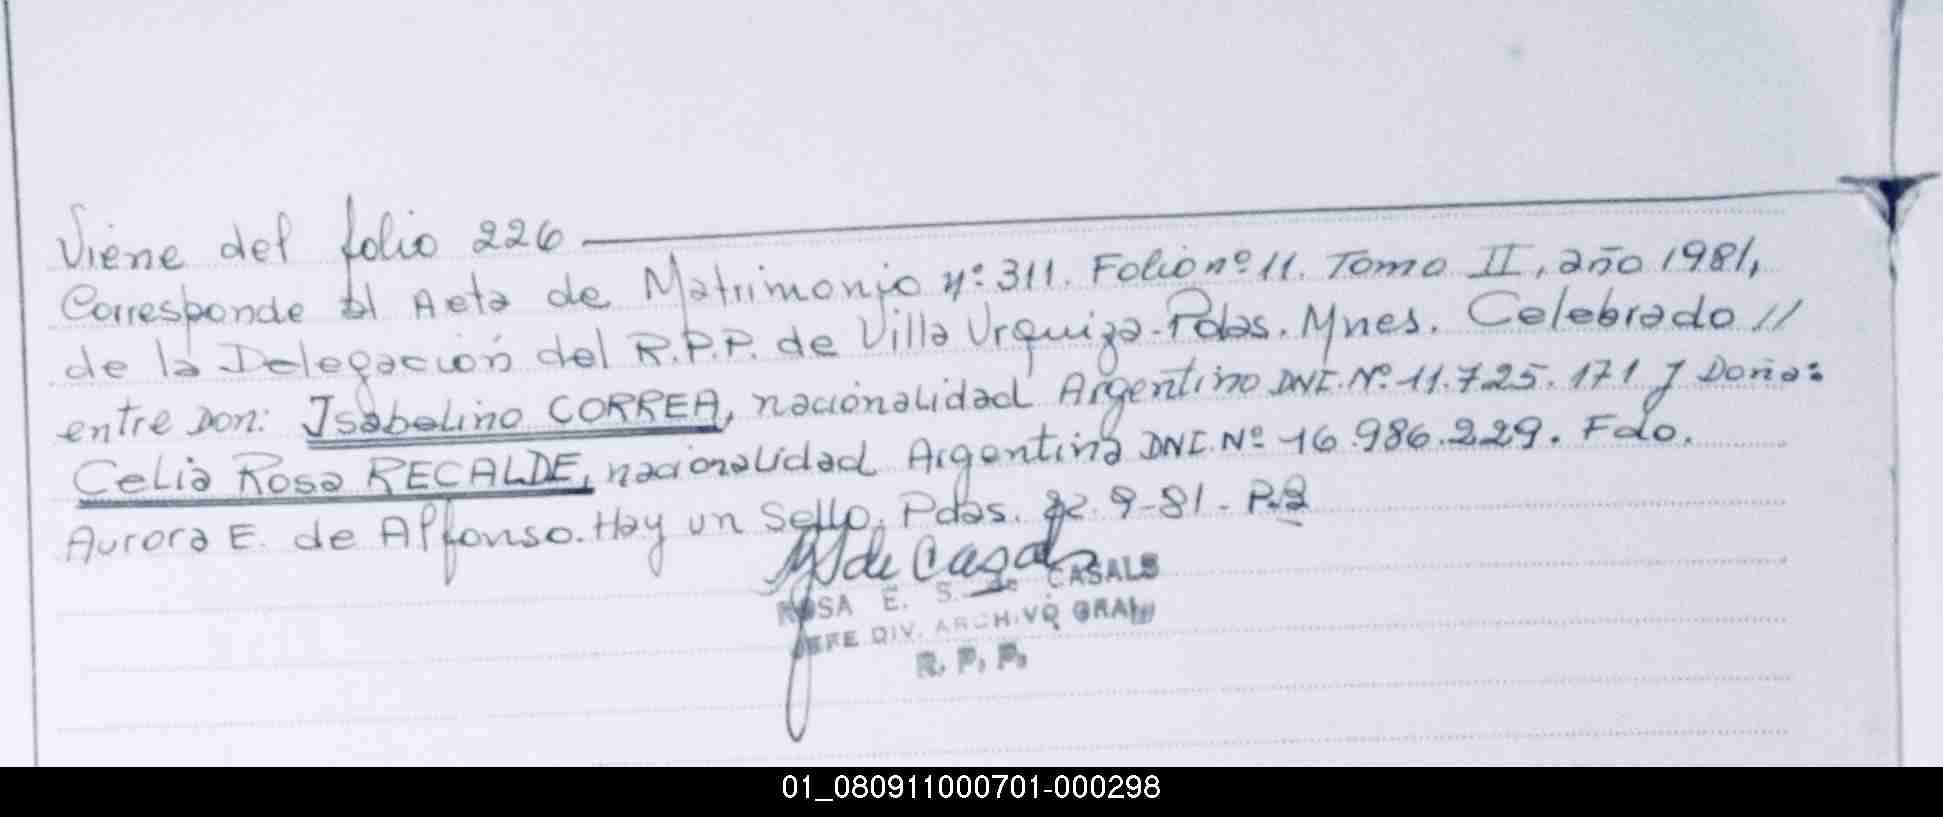 Viene del folio 226
Corresponde al Acta de Matrimonio nº 311. Folio nº 11. Tomo II, año 1981,
de la Delegación del R.P.P. de Villa Urquiza - Pdas. Mnes. Celebrado //
entre Don: Isabelino CORREA, nacionalidad Argentino DNI. Nº 11.725.171 y Doña:
Celia Rosa RECALDE, nacionalidad Argentina DNI. Nº 16.986.229. Fdo.
Aurora E. de Alfonso. Hay un Sello. Pdas. 22-9-81 -
de Casals
ROSA E. S. de CASALS
JEFE DIV. ARCHIVO GRAL
R. P. P.
01_080911000701-000298